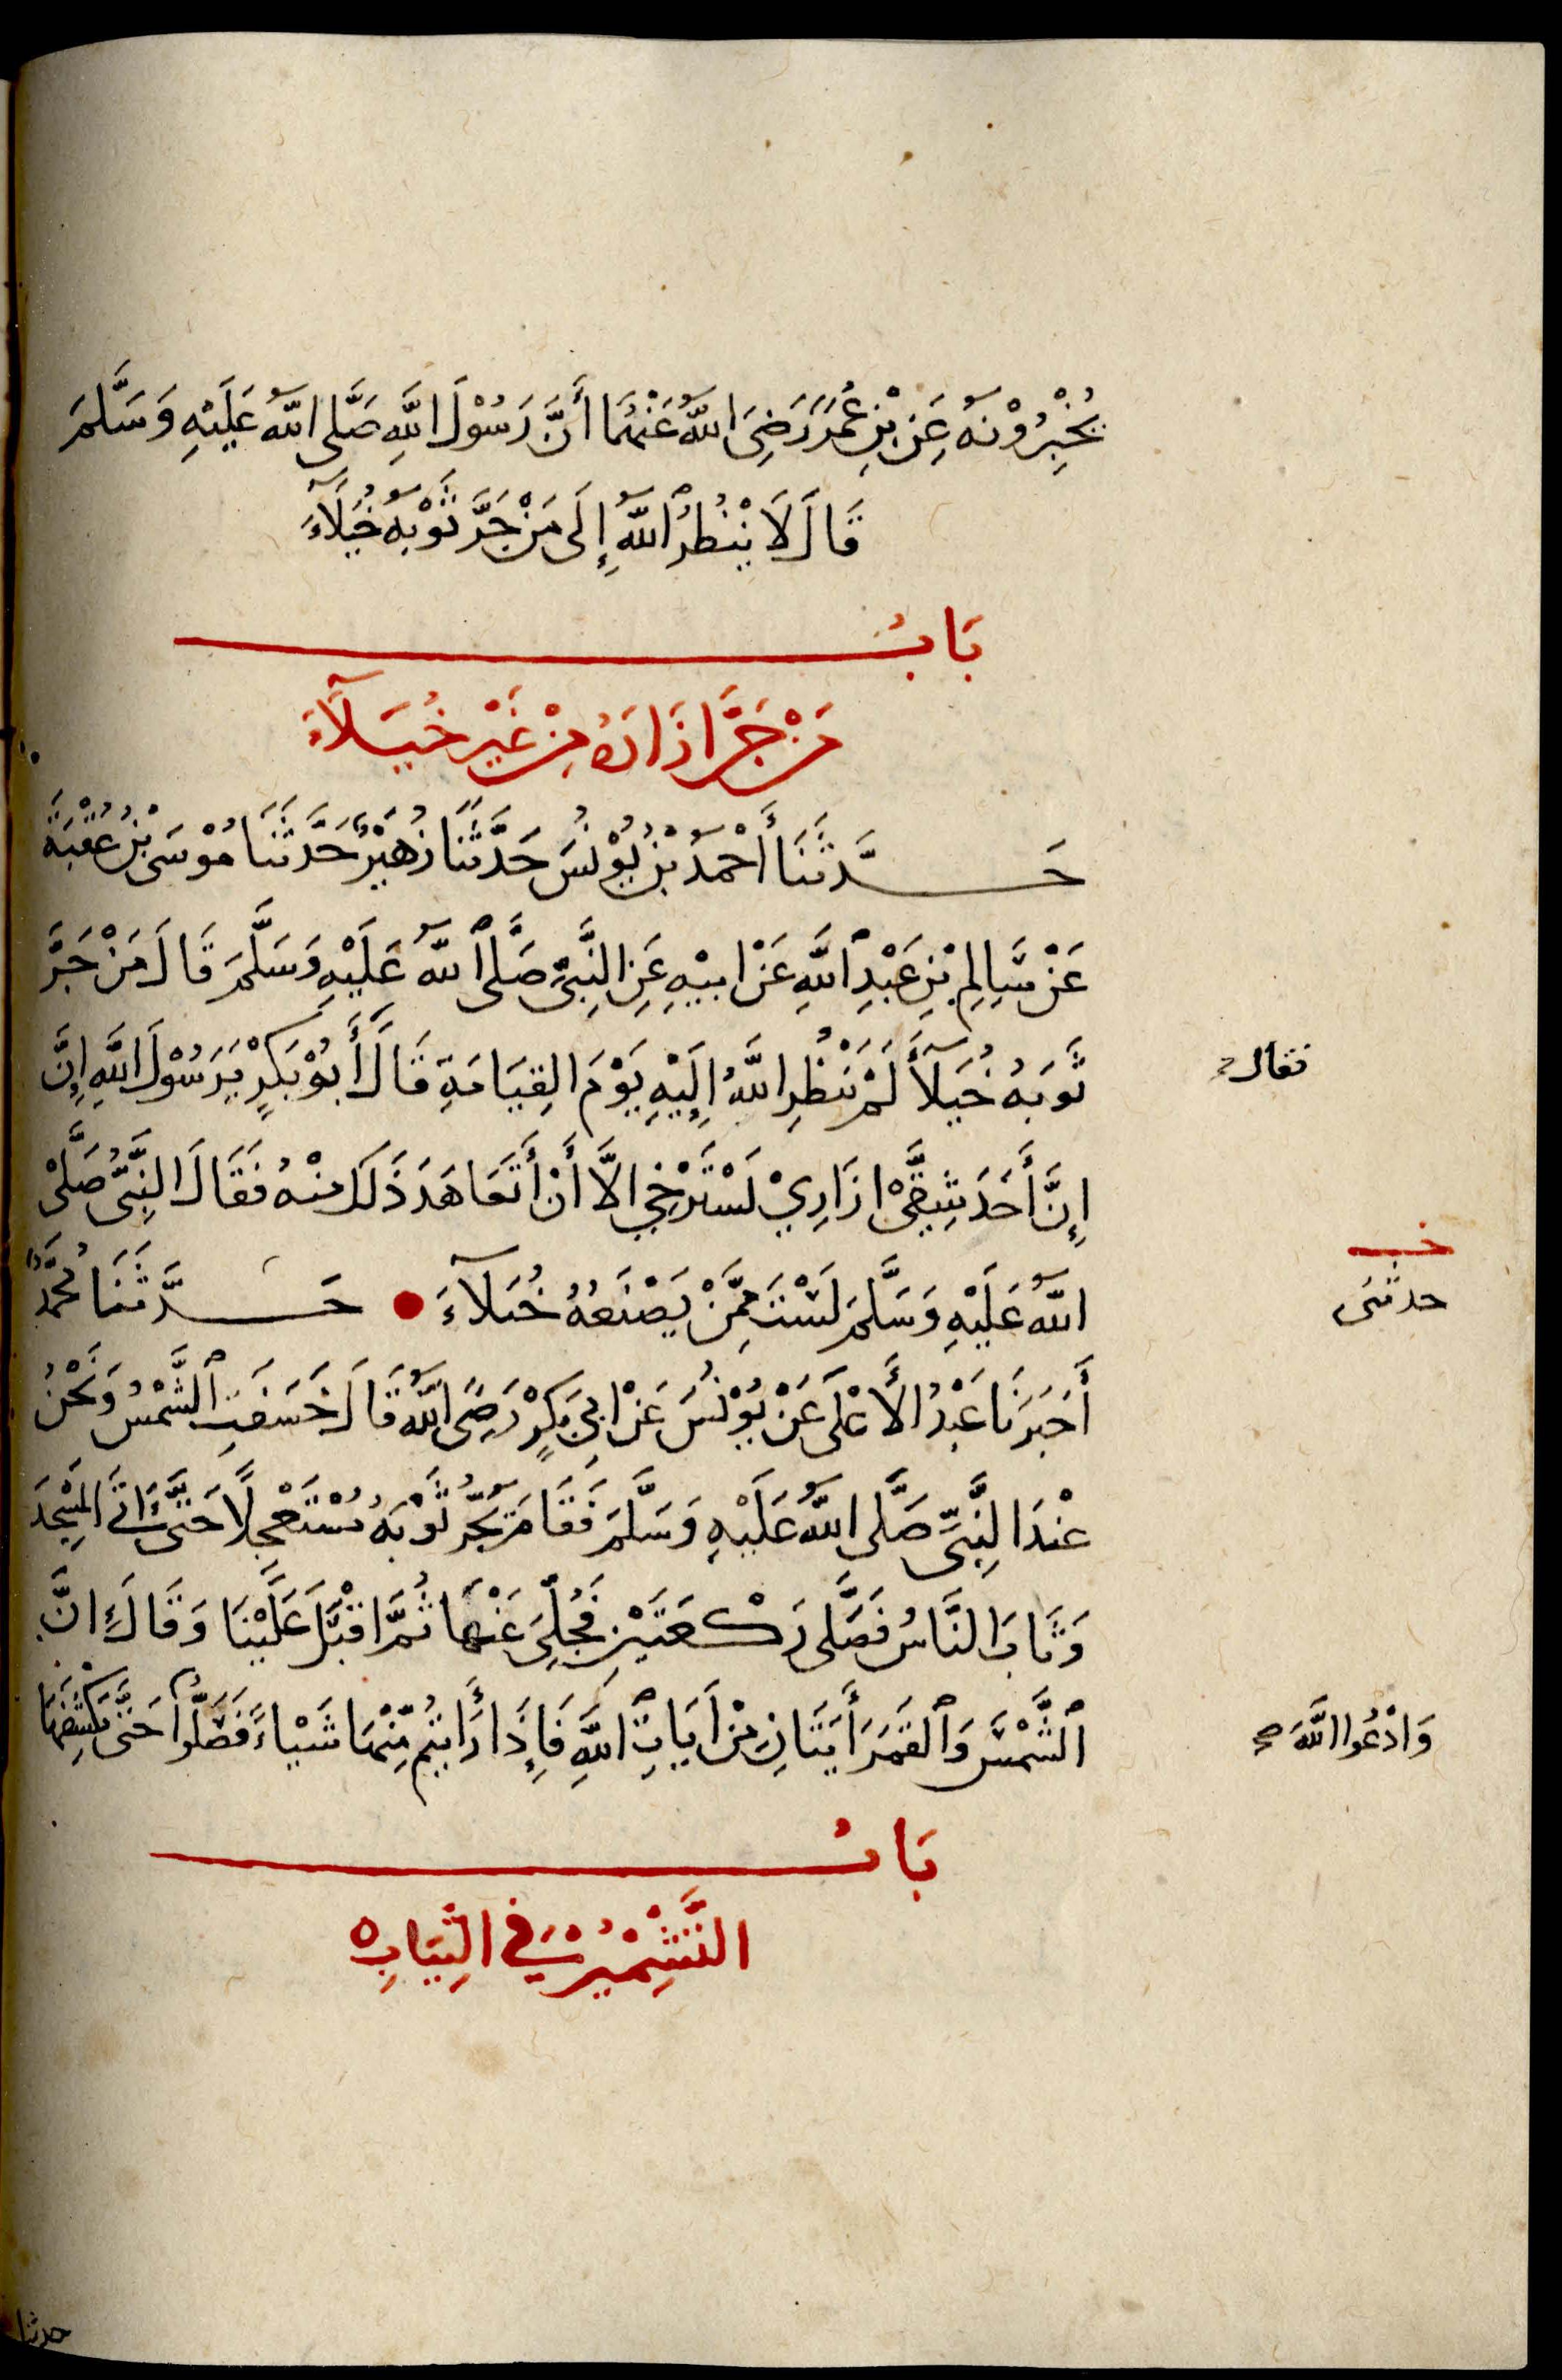 يُخْبِرُوْنَهُ عَنِ بْنِ عُمَرَ رَضِيَ اللَّهُ عَنْهُمَا أَنَّ رَسُوْلَ اللَّهِ صَلَّى اللَّهُ عَلَيْهِ وَسَلَّمَ
قَالَ لَا يَنْظُرُ ٱللَّهُ إِلَى مَنْ جَرَّ ثَوْبَهُ خُيَلَآءَ
بَابُ
مَنْ جَرَّ ازَارَهُ مِنْ غَيْرِ خُيَلآءَ
حَدَّثَنَا أَحْمَدُ بْنُ يُوْنُسَ حَدَّثَنَا زُهَيْرٌ حَدَّثَنَا مُوْسَى بْنُ عُقْبَةَ
عَنْ سَالِمِ بْنِ عَبْدِ ٱللَّهِ عَنْ ابِيْهِ عَنِ النَّبِيِّ صَلَّى ٱللَّهُ عَلَيْهِ وَسَلَّمَ قَالَ مَنْ جَرَّ
ثَوبَهُ خُيَلآءَ لَمْ يَنْظُرِ اللَّهُ إِلَيْهِ يَوْمَ الِقيَامَةِ قَالَ أَبُوْ بَكرٍ يَرَسُوْلَ اللَّهِ إِنَّ
فقال
إِنَّ أَحَدَ شِقَّيْ ازَارِيْ لَسْتَرْخِي الَّا أَنْ أَتَعَاهَدَ ذَلَكَ مِنْهُ فَقَالَ النِّبَىُّ صَلَّىْ
اللَّهُ عَلَيْهِ وَسَلَّمَ لَسْتَ مِمَّنْ يَصْنَعُهُ خُيَلآءَ حَدَّثَنَا مُحَمَّدٌ
خـ
حدثنى
أَخبَرَنَا عَبْدُ الأَعْلَى عَنْ يُوْنُسَ عَنْ ابِي بَكرٍ رَضِىَ اللَّهُ قَالَ خَسَفَتِ ٱلشَّمْسُ وَنَحْنُ
عْندَ النِّبَيِّ صَلَّى اللَّهُ عَلَيْهِ وَسَلَّمَ فَقَامَ يَجُرُّ ثَوْبَهُ مُسْتَعْجِلًا حَتَّى اتَى المَسْجِدَ
وَثَابَ النَّاسُ فَصَلَّى رَكْعَتَيْنِ فَجُلِّيَ عَنْهَا ثُمَّ اقْبَلَ عَلَيْنَا وَقَالَ إِنَّ
ٱلشَّمْسَ وَٱلقَمَرَ أَيَتَانِ مِنْ اَيَاتِ ٱللَّهِ فَإِذَا رَأَيتُم مِّنْهَا شَيْاءً فَصَلُّوا حَتَّى يَكْشِفَهَا
وَادْعُوا اللَّهَ صح
بَابُ
التَّشْمِيْرُ فِي الثِّيَابِ ه
حدثنا